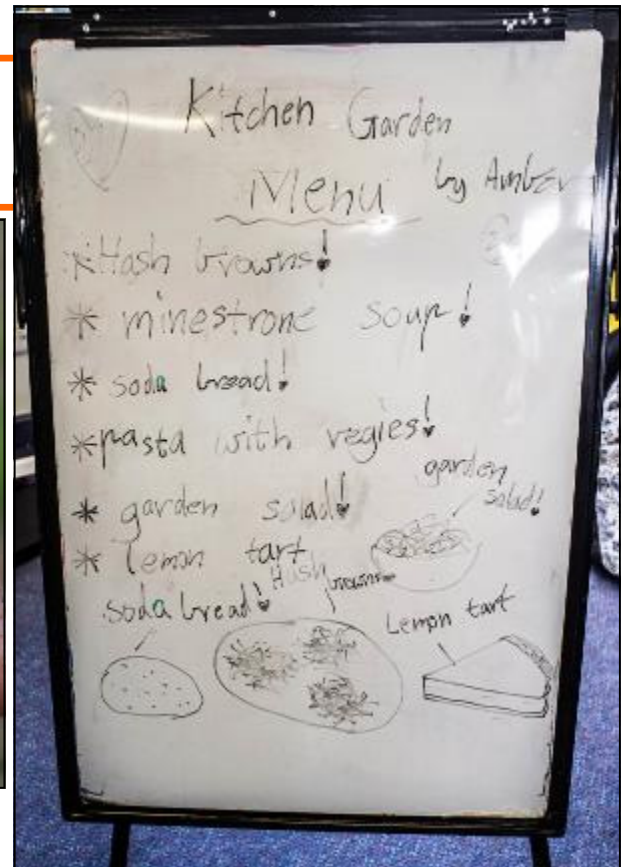 Kitchen Garden
Menu by Amber
* Hash browns!
* minestrone soup!
* soda bread!
* pasta with vegies!
* garden salad!
* lemon tart
garden
salad!
Hash
browns
soda bread!
Lemon tart